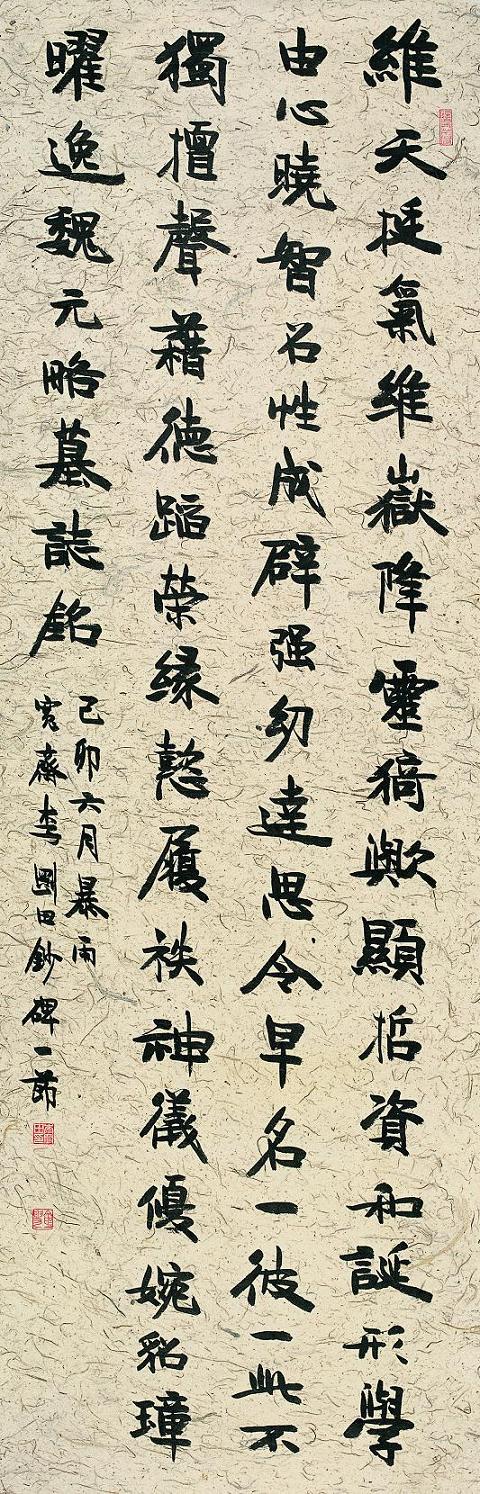 維天挺氣維嶽降靈猗歟顯哲資和誕形學
由心曉智名性成辟强幼達思令早名一彼一此不
獨擅聲藉德蹈榮緣懿履袟神儀優婉貂璋
曜逸魏元略墓誌銘
己卯六月暴雨
寬齋李剛田鈔碑一節